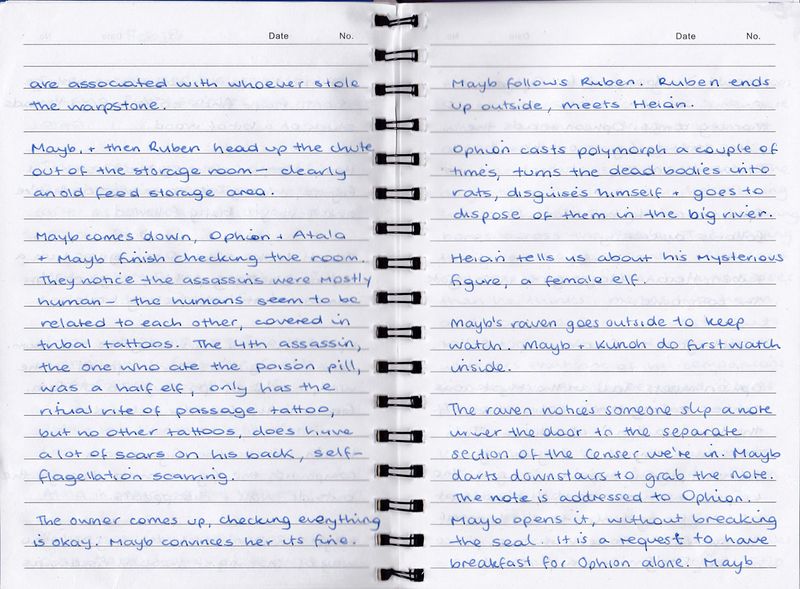 Date No.
are associated with whoever stole
the warpstone.
Mayb, + then Ruben head up the chute
out of the storage room - clearly
an old feed storage area.
Mayb comes down, Ophion + Atala
+ Mayb finish checking the room.
They notice the assassins were mostly
human - the humans seem to be
related to each other, covered in
tribal tattoos. The 4th assassin,
the one who ate the poison pill,
was a half elf, only has the
ritual rite of passage tattoo,
but no other tattoos, does have
a lot of scars on his back, self-
flagellation scarring.
The owner comes up, checking everything
is okay. Mayb convinces her its fine.
Date No.
Mayb follows Ruben. Ruben ends
up outside, meets Heian.
Ophion casts polymorph a couple of
times, turns the dead bodies into
rats, disguises himself + goes to
dispose of them in the big river.
Heian tells us about his mysterious
figure, a female elf.
Mayb's raven goes outside to keep
watch. Mayb + Kunoh do first watch
inside.
The raven notices someone slip a note
under the door to the separate
section of the Censer we're in. Mayb
darts downstairs to grab the note.
The note is addressed to Ophion.
Mayb opens it, without breaking
the seal. It is a request to have
breakfast for Ophion alone. Mayb